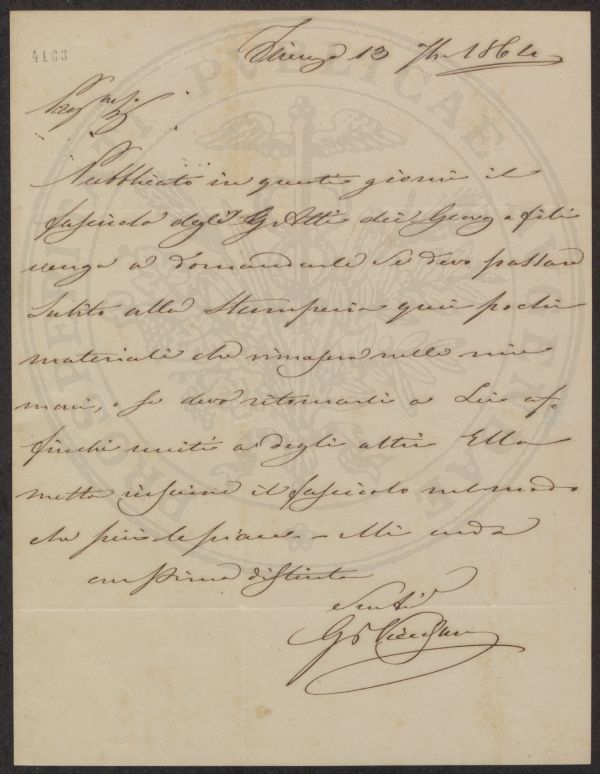 4163
Firenze 13 7bre 1864
Pubblicato in questi giorni il
fascicolo degli Atti dei Georgofili
vengo a domandarle se devo passare
subito alla Stamperia quei pochi
materiali che rimasero nelle mie
mani, o se devo ritornarli a Lei af-
finchè uniti a degli altri Ella
metta insieme il fascicolo nel modo
che più le piace. Mi creda
con stima distinta